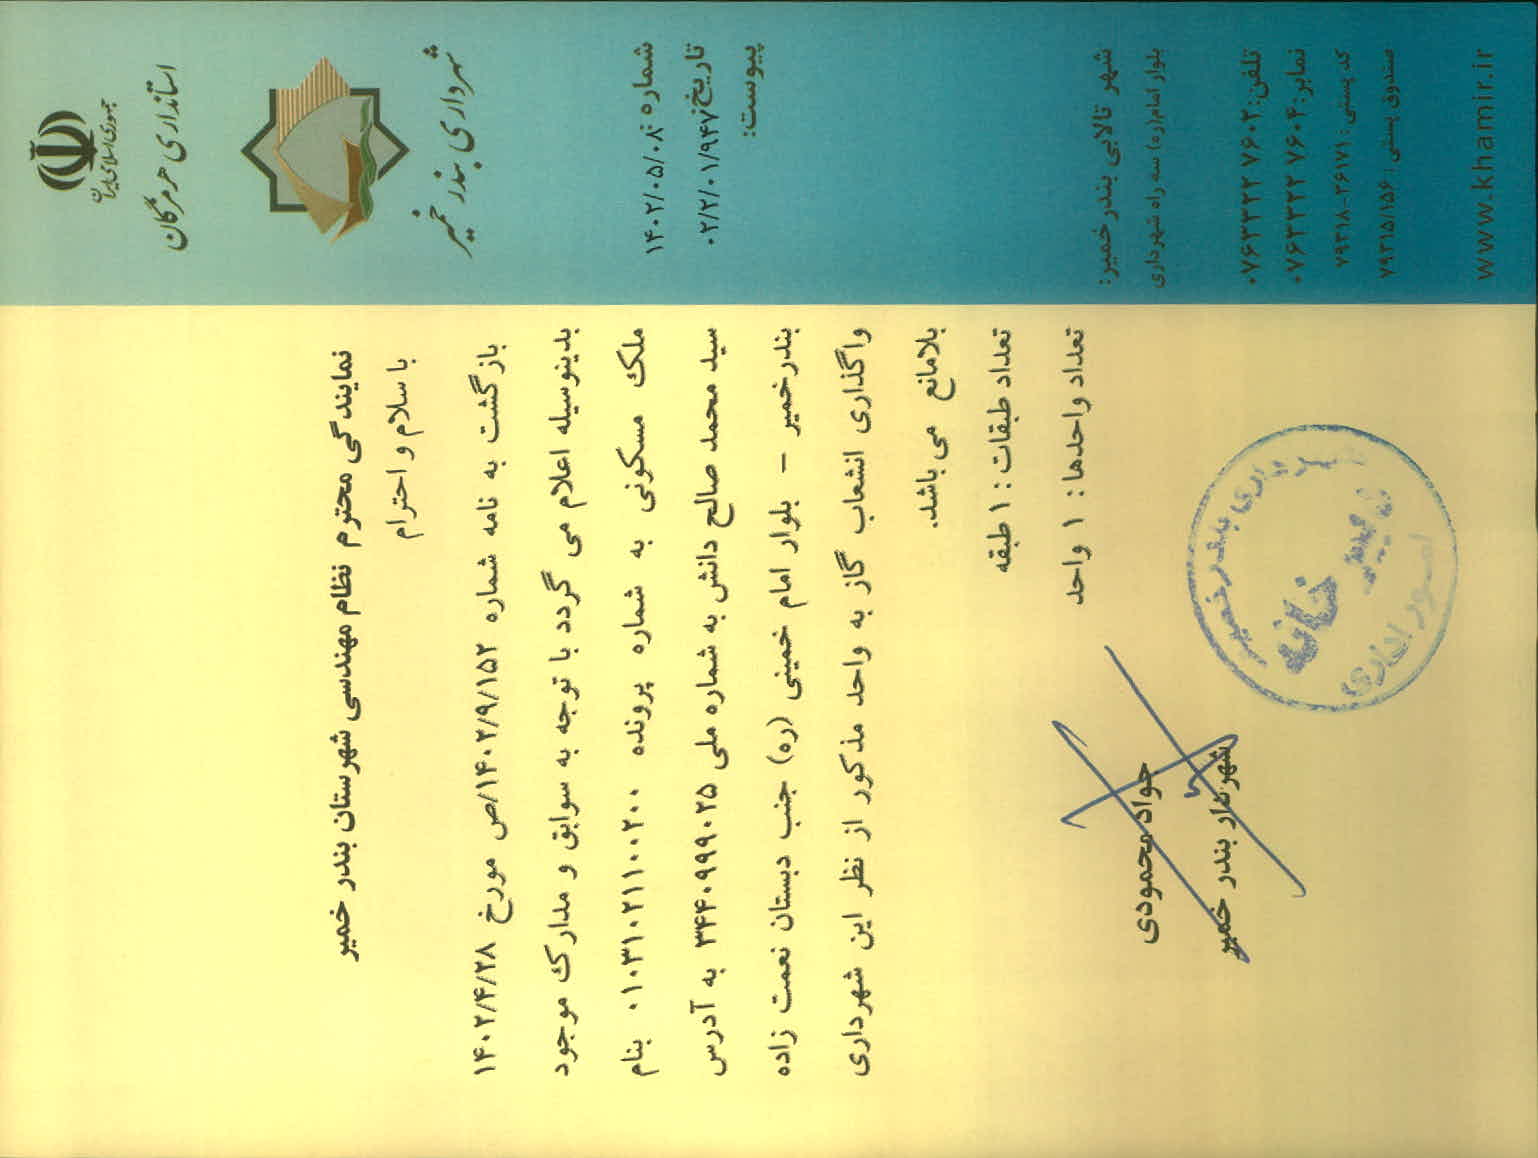 جمهوری اسلامی ایران
استانداری هرمزگان
شهرداری بندر خمیر
شماره: ۱۴۰۲/۰۵/۰۸
تاریخ: ۰۲/۲/۰۱/۹۴۷
پیوست:
شهر تالابی بندر خمیر:
بلوار امام(ره) سه راه شهرداری
تلفن: ۰۷۶۳۳۲۲ ۷۶۰۲
نمابر: ۰۷۶۳۳۲۲ ۷۶۰۴
کد پستی: ۷۹۳۱۸-۳۶۱۷۱
صندوق پستی: ۷۹۳۱۵/۱۵۶
www.khamir.ir
نمایندگی محترم نظام مهندسی شهرستان بندر خمیر
با سلام و احترام
بازگشت به نامه شماره ۱۴۰۲/۹/۱۵۲/ص مورخ ۱۴۰۲/۴/۲۸
بدینوسیله اعلام می گردد با توجه به سوابق و مدارک موجود
ملک مسکونی به شماره پرونده ۰۱۰۳۱۰۲۱۱۰۰۲۰۰ بنام
سید محمد صالح دانش به شماره ملی ۳۴۴۰۹۹۹۰۲۵ به آدرس
بندرخمیر – بلوار امام خمینی (ره) جنب دبستان نعمت زاده
واگذاری انشعاب گاز به واحد مذکور از نظر این شهرداری
بلامانع می باشد.
تعداد طبقات : ۱ طبقه
تعداد واحدها : ۱ واحد
جواد محمودی
شهردار بندر خمیر
شهرداری بندر خمیر
دبیر خانه
امور اداری